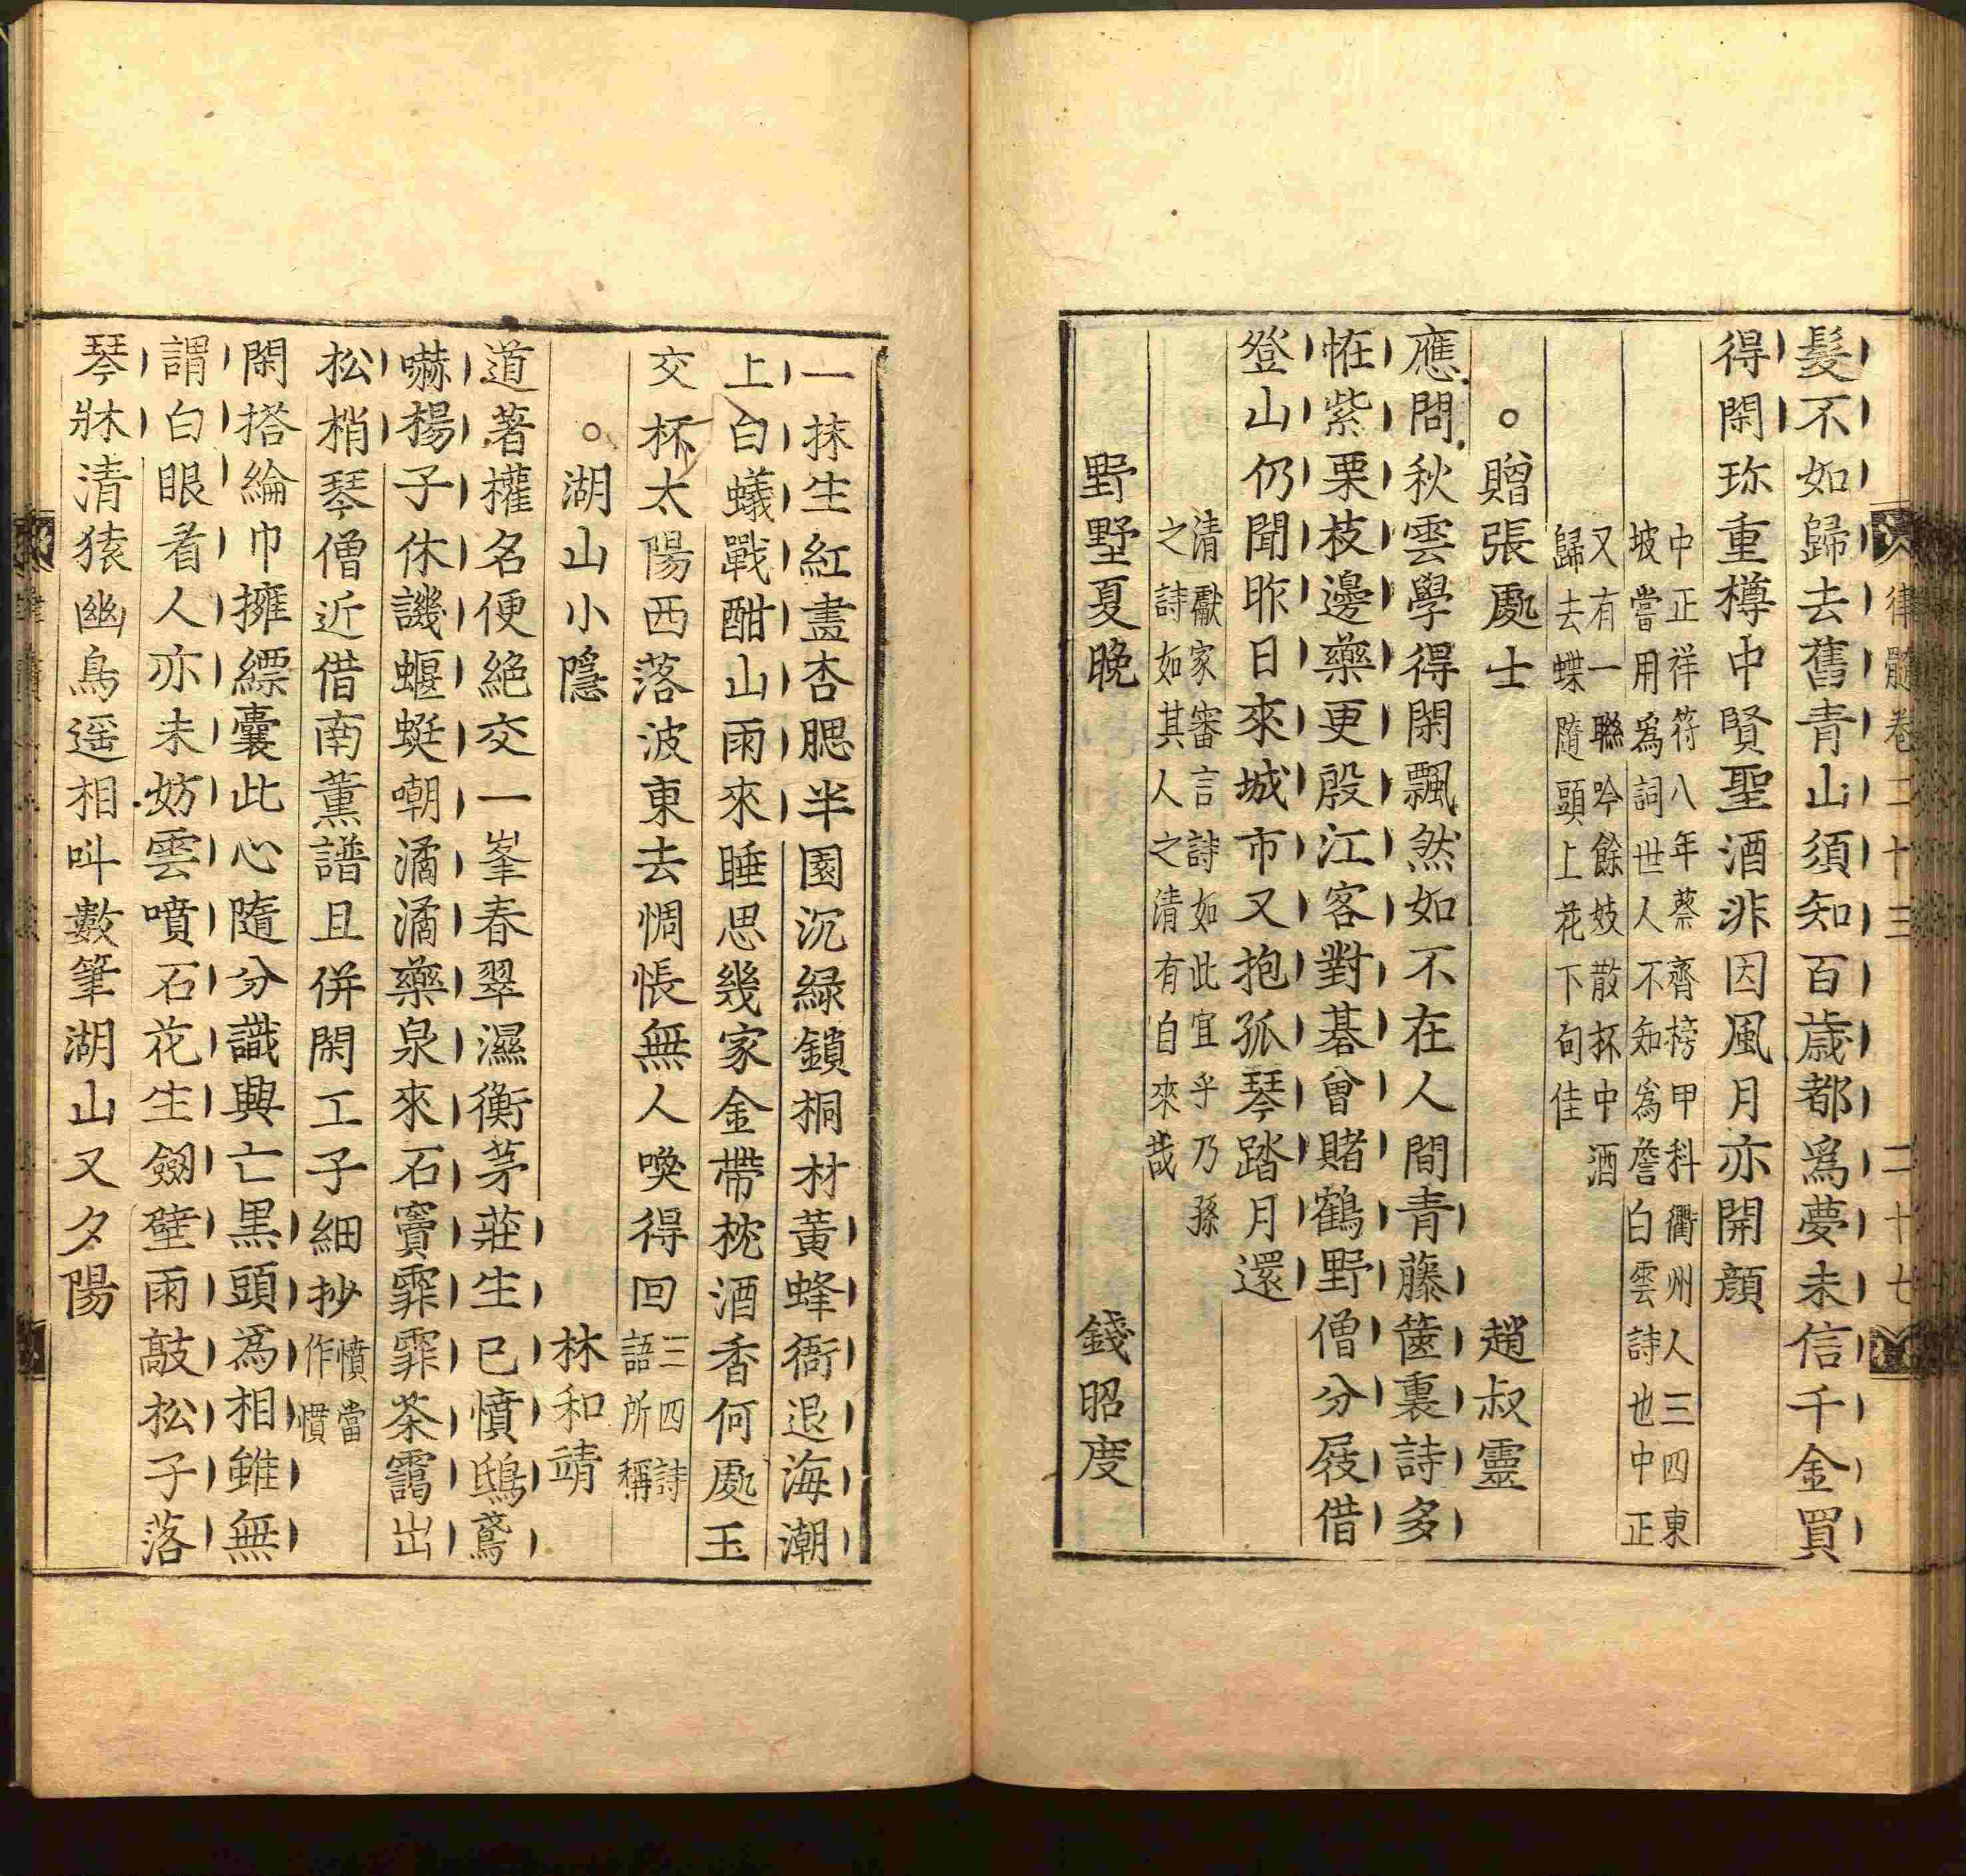 律髓卷二十三 二十七
髮不如歸去舊青山須知百歲都爲夢未信千金買
得閑珎重樽中賢聖酒非因風月亦開顔
中正祥符八年蔡齊榜甲科衢州人三四東
坡嘗用爲詞世人不知爲詹白雲詩也中正
又有一聯吟餘妓散杯中酒
歸去蝶隨頭上花下句佳
○贈張處士 趙叔靈
應問秋雲學得閑飄然如不在人間青藤箧裏詩多
恠紫栗枝邊藥更殷江客對碁曾賭鶴野僧分屐借
登山仍聞昨日來城市又抱孤琴踏月還
清獻家審言詩如此宜乎乃孫
之詩如其人之清有自來哉
野墅夏晚 錢昭度
一抹生紅畫杏腮半園沉綠鎖桐材黃蜂衙退海潮
上白蟻戰酣山雨來睡思幾家金帶枕酒香何處玉
交杯太陽西落波東去惆悵無人喚得回
三四詩
語所稱
○湖山小隱 林和靖
道著權名便絕交一峯春翠濕衡茅莊生已憤鴟鳶
嚇楊子休譏蝘蜓嘲潏潏藥泉來石竇霏霏茶靄出
松梢琴僧近借南薰譜且併閑工子細抄
憤當
作慣
閑搭綸巾擁縹囊此心隨分識興亡黒頭爲相雖無
謂白眼看人亦未妨雲噴石花生劔壁雨敲松子落
琴牀清猿幽鳥遥相叫數筆湖山又夕陽